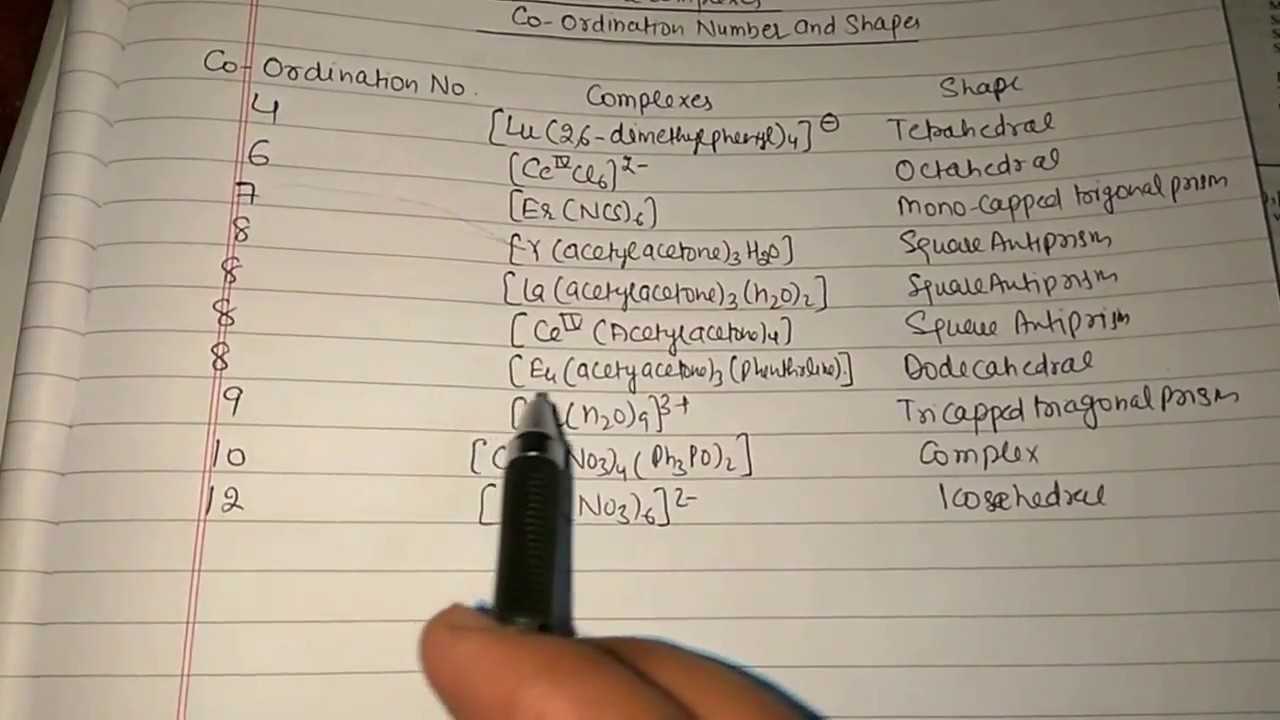 Co-Ordination Number and Shapes
Co-Ordination No. Complexes Shape
4 [Lu(2,6-dimethylphenyl)4]⊖ Tetrahedral
6 [CeIVCl6]2- Octahedral
7 [Er(NCS)6] Mono-capped trigonal prism
8 [Y(acetylacetone)3H2O] Square Antiprism
8 [La(acetylacetone)3(h2O)2] Square Antiprism
8 [CeIV(Acetylacetone)4] Squeue Antiprism
8 [Eu(acetyacetone)3(phenthroline)] Dodecahedral
9 (h2O)9]3+ Tricapped triagonal prism
10 NO3)4(Ph3PO)2] Complex
12 NO3)6]2- Icosehedral